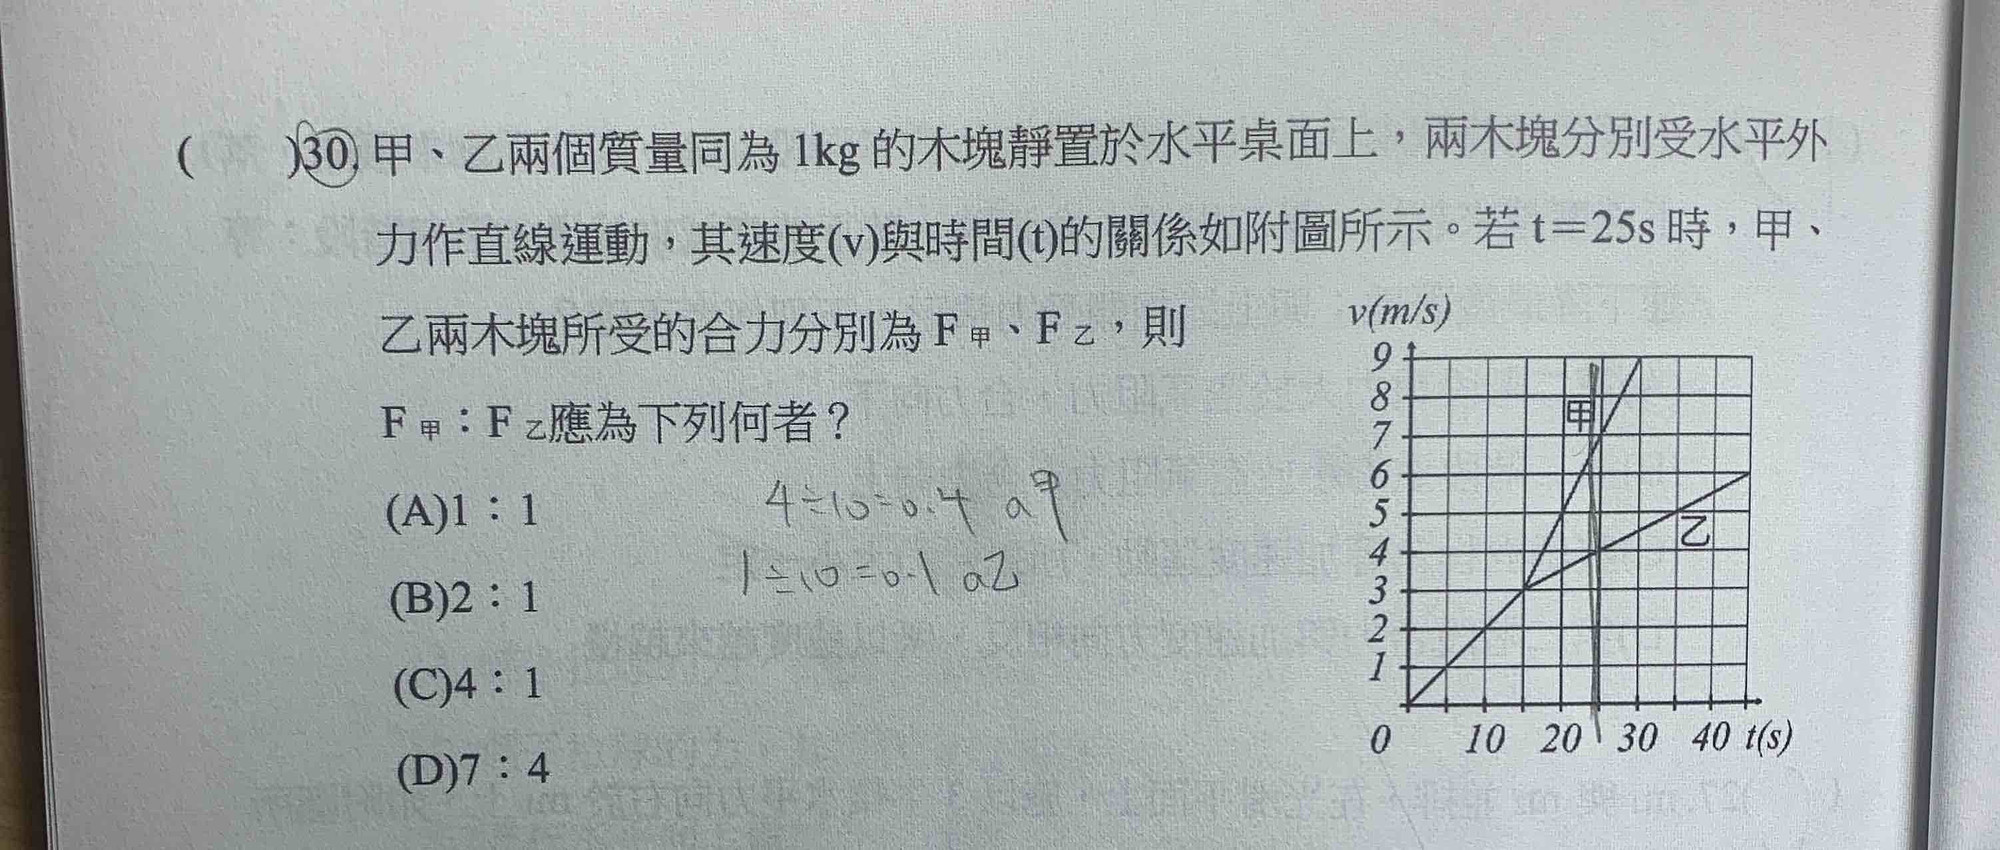 ( )30. 甲、乙兩個質量同為 1kg 的木塊靜置於水平桌面上，兩木塊分別受水平外
力作直線運動，其速度(v)與時間(t)的關係如附圖所示。若 t＝25s 時，甲、
乙兩木塊所受的合力分別為 F甲、F乙，則
F甲：F乙應為下列何者？
(A)1：1
(B)2：1
(C)4：1
(D)7：4
4÷10=0.4 a甲
1÷10=0.1 a乙
v(m/s)
9
8
7
6
5
4
3
2
1
甲
乙
0 10 20 30 40 t(s)